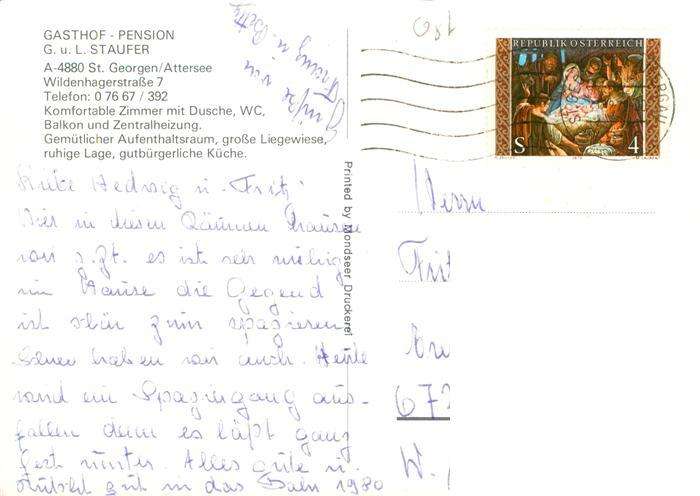 GASTHOF - PENSION
G. u. L. STAUFER
A-4880 St. Georgen/Attersee
Wildenhagerstraße 7
Telefon: 0 76 67 / 392
Komfortable Zimmer mit Dusche, WC,
Balkon und Zentralheizung.
Gemütlicher Aufenthaltsraum, große Liegewiese,
ruhige Lage, gutbürgerliche Küche.
Grüße von
Franz u. Betty
Hedwig u. Fritz
Hier in diesen Räumen hausen
wir z. Zt. es ist sehr ruhig
im Hause die Gegend
ist schön zum spazieren
haben wir auch. Heute
wird ein Spaziergang aus-
fallen denn es läßt ganz
fest runter. Alles gute u.
Rutscht gut in das Jahr 1980
Printed by Mondseer Druckerei
180
REPUBLIK ÖSTERREICH
S 4
Herrn
Frit
672
W.